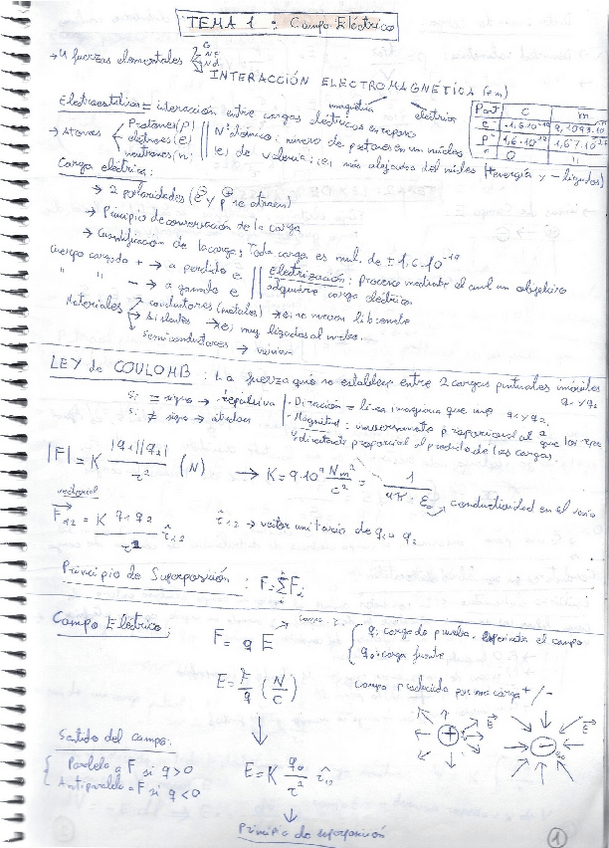 TEMA 1: Campo Eléctrico
→ 4 fuerzas elementales G Nc Nd
INTERACCIÓN ELECTROMAGNÉTICA (em)
magnética eléctrica
Electroestática = interacción entre cargas eléctricas en reposo
Part C m
e⁻ -1,6·10⁻¹⁹ 9,1093·10
p⁺ 1,6·10⁻¹⁹ 1,67·10⁻²⁷
0 "
→ Átomos Protones (p)
electrones (e)
neutrones (n)
Nº atómico: número de protones en un núcleo
e⁻ de valencia: más alejados del núcleo (+energía y - ligados)
Carga eléctrica:
→ 2 polaridades (⊖ y ⊕ se atraen)
→ Principio de conservación de la carga
→ Cuantificación de la carga: Toda carga es mul. de ±1,6·10⁻¹⁹
Cuerpo cargado + → a perdido e
" " - → a ganado e
Electrización: Proceso mediante el cual un objeto
adquiere carga eléctrica
Materiales conductores (metales) → e⁻ se mueven libremente
Aislantes → e⁻ muy ligados al núcleo
semiconductores → varían
LEY de COULOMB: La fuerza que se establece entre 2 cargas puntuales inmóviles
q₁ y q₂
si = signo → repulsiva
si ≠ signo → atractiva
- Dirección = línea imaginaria que une q₁ y q₂
- Magnitud: inversamente proporcional al
directamente proporcional al producto de las cargas.
|F| = K |q₁||q₂| / r² (N) → K = 9·10⁹ Nm²/C² = 1 / 4π·ε₀ → conductividad en el vacío
vectorial
F₁₂ = K q₁ q₂ / r² r̂₁₂ r̂₁₂ → vector unitario de q₁ a q₂
Principio de Superposición: F = Σ Fᵢ
Campo Eléctrico:
F = q E
q: carga de prueba, experimenta el campo
q₀: carga fuente
E = F/q (N/C)
campo producido por una carga + / -
E⃗ + E⃗ -
Sentido del campo:
Paralelo a F si q > 0
Antiparalelo a F si q < 0
E = K q₀ / r² r̂
Principio de superposición
1